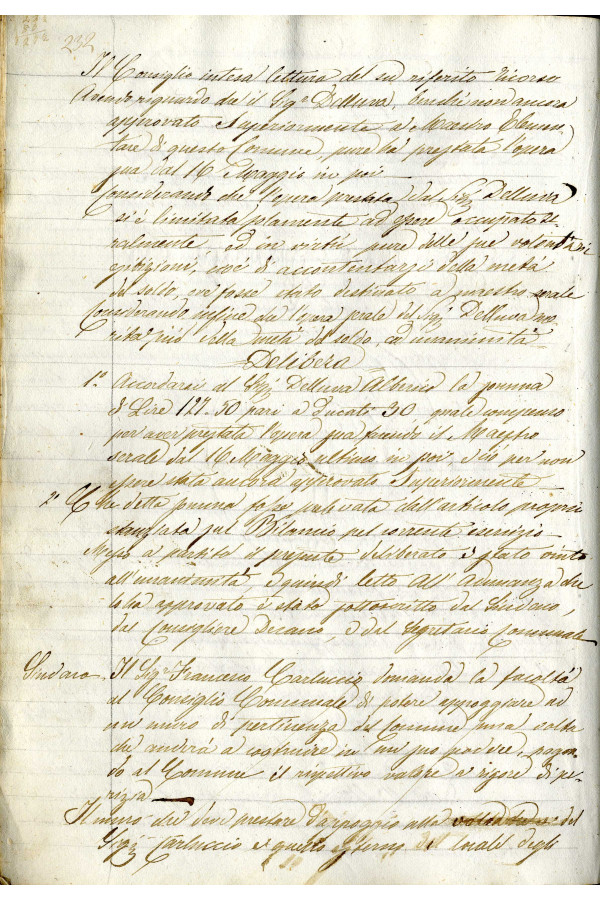 232
Il Consiglio intesa lettura del su riferito ricorso
Avendo riguardo che il Sigr Delluva, benchè non ancora
approvato Superiormente a Maestro Elemen-
tare di questo Comune, pure ha prestata l'opera
sua dal 16 Maggio in poi
Considerando che l'opera prestata dal Sigr Delluva
si è limitata solamente ad essere occupato se-
ralmente, ed in virtù pure delle sue volontarie
esibizioni, cioè di accontentarsi della metà
del soldo, ove fosse stato destinato a maestro serale
Considerando infine che l'opera serale del Sigr Delluva me-
rita più della metà del soldo, ad unanimità
Delibera
1° Accordarsi al Sigr Delluva Alberico la somma
di Lire 127.50 pari a Ducati 30 quale compenso
per aver prestata l'opera sua facendo il Maestro
serale dal 16 Maggio ultimo in poi, e ciò per non
essere stata ancora approvato Superiormente
2° Che detta somma fosse prelevata dall'articolo proprio
stanziato nel Bilancio pel corrente esercizio
Messo a partito il presente deliberato è stato vinto
all'unanimità, e quindi letto all'Adunanza che
lo ha approvato è stato sottoscritto dal Sindaco,
dal Consigliere Decano, e dal Segretario Comunale
Sindaco. Il Sigr Francesco Carluccio domanda la facoltà
al Consiglio Comunale di potere appoggiare ad
un muro di pertinenza del Comune una volta
che andrà a costruire in un suo podere, pagan-
do al Comune il rispettivo valore a rigore di pe-
rizia
Il muro che deve prestare l'appoggio alla volta del
Sigr Carluccio è quello esterno del locale degli